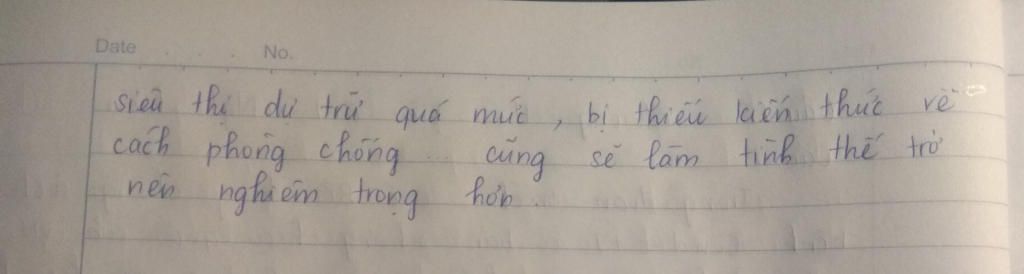 Date . . . No.
siêu thị dự trữ quá mức, bị thiếu kiến thức về
cách phòng chống ... cũng sẽ làm tình thế trở
nên nghiêm trọng hơn.